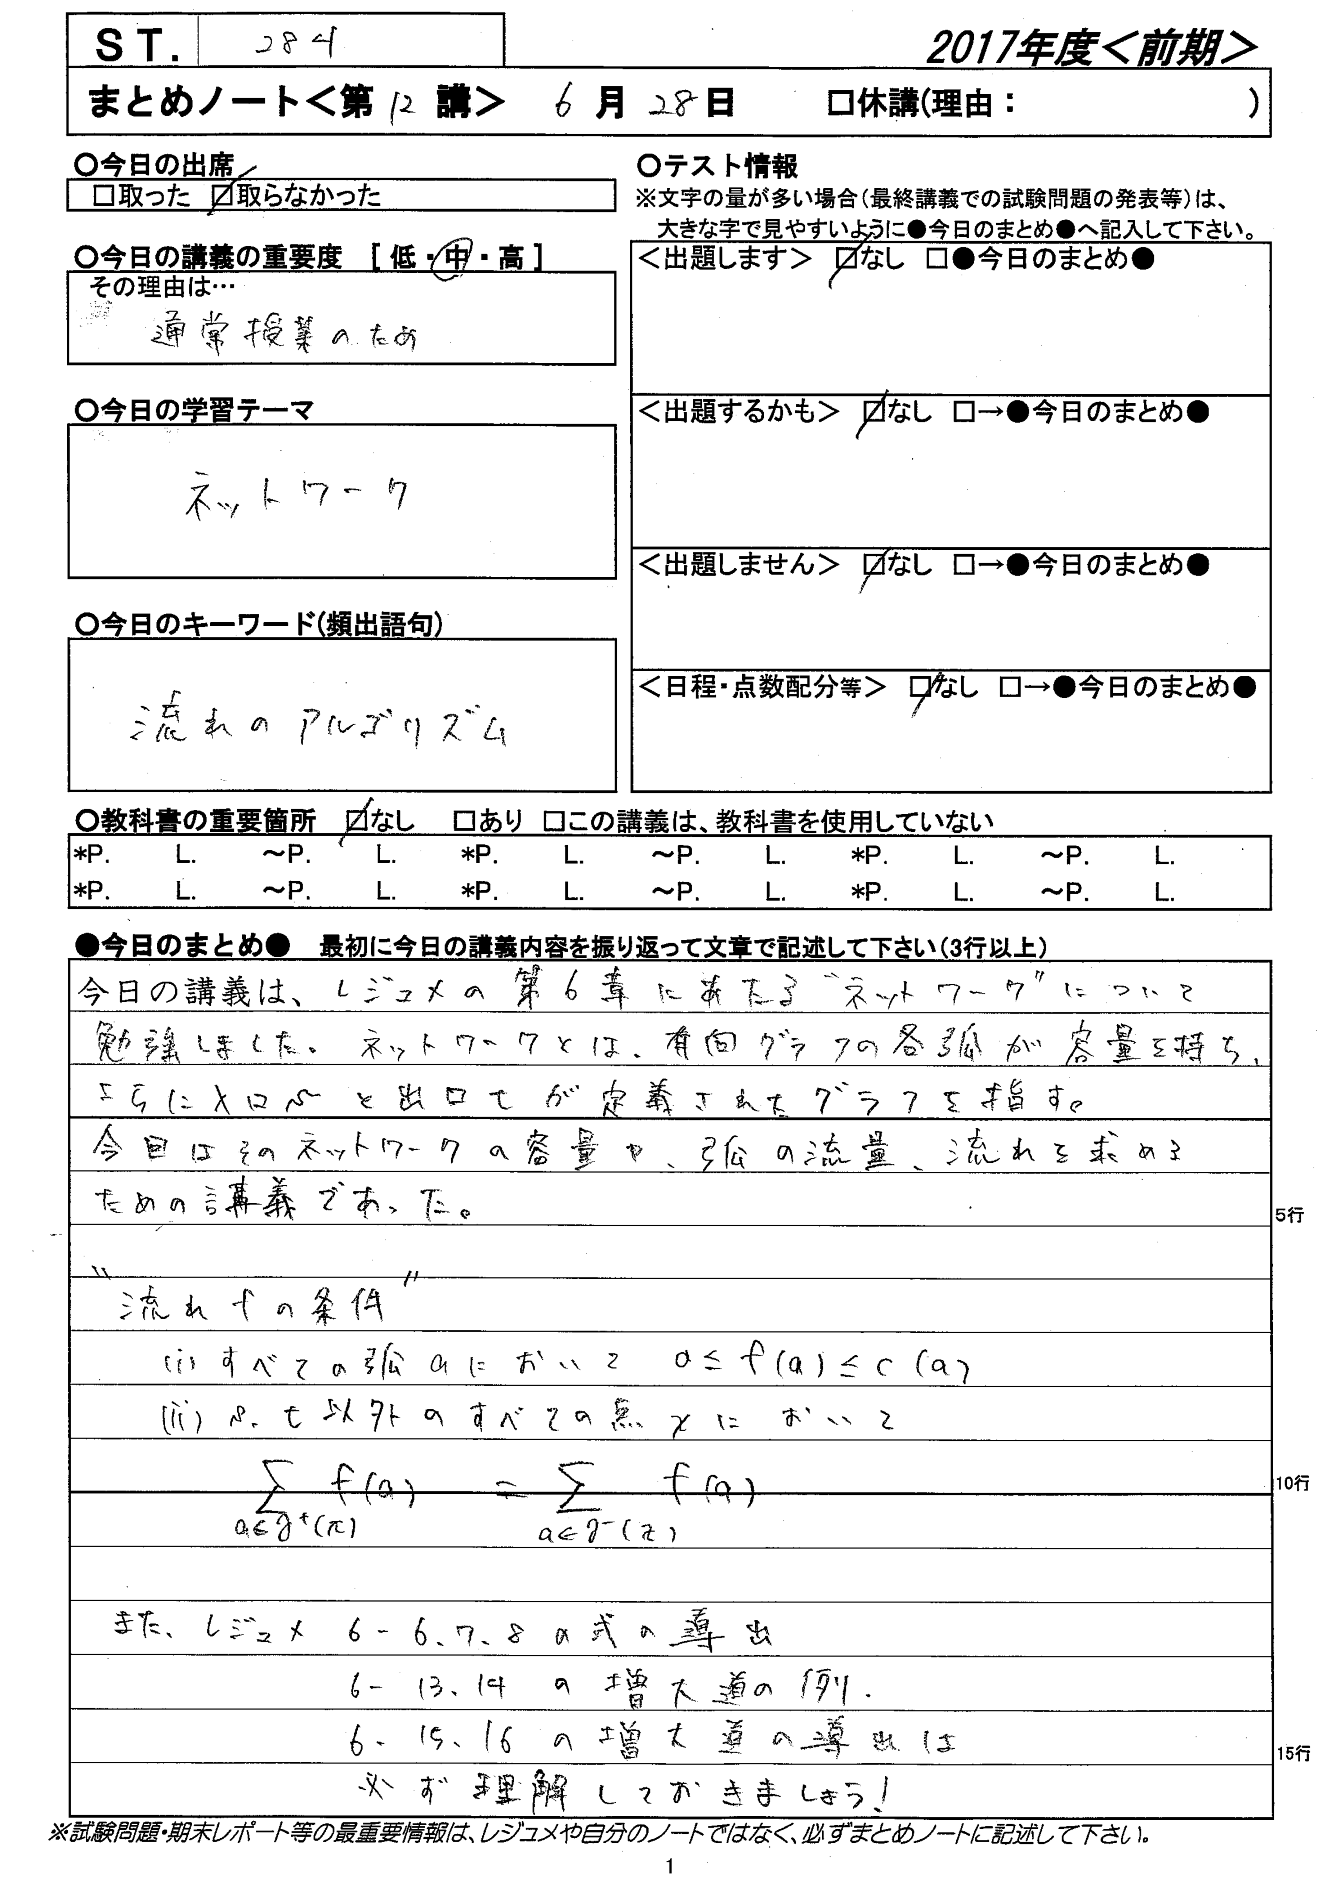 ST. 284
2017年度＜前期＞
まとめノート＜第12講＞ 6月28日 □休講(理由： )
○今日の出席
□取った ☑取らなかった
○今日の講義の重要度 [ 低・中・高 ]
その理由は…
通常授業のため
○今日の学習テーマ
ネットワーク
○今日のキーワード(頻出語句)
流れのアルゴリズム
○テスト情報
※文字の量が多い場合(最終講義での試験問題の発表等)は、
大きな字で見やすいように●今日のまとめ●へ記入して下さい。
＜出題します＞ ☑なし □●今日のまとめ●
＜出題するかも＞ ☑なし □→●今日のまとめ●
＜出題しません＞ ☑なし □→●今日のまとめ●
＜日程・点数配分等＞ ☑なし □→●今日のまとめ●
○教科書の重要箇所 ☑なし □あり □この講義は、教科書を使用していない
*P. L. ～P. L. *P. L. ～P. L. *P. L. ～P. L.
*P. L. ～P. L. *P. L. ～P. L. *P. L. ～P. L.
●今日のまとめ● 最初に今日の講義内容を振り返って文章で記述して下さい(3行以上)
今日の講義は、レジュメの第6章にあたる"ネットワーク"について
勉強しました。ネットワークとは、有向グラフの各弧が容量を持ち、
さらに入口sと出口tが定義されたグラフを指す。
今回はそのネットワークの容量や、弧の流量、流れを求める
ための講義であった。 5行
"流れfの条件"
(i) すべての弧aにおいて 0≤f(a)≤c(a)
(ii) s、t以外のすべての点xにおいて
∑ f(a) = ∑ f(a) 10行
a∈g⁺(x) a∈g⁻(x)
また、レジュメ 6-6、7、8の式の導出
6-13、14 の増大道の例.
6-15、16の増大道の導出は 15行
必ず理解しておきましょう!
※試験問題・期末レポート等の最重要情報は、レジュメや自分のノートではなく、必ずまとめノートに記述して下さい。
1